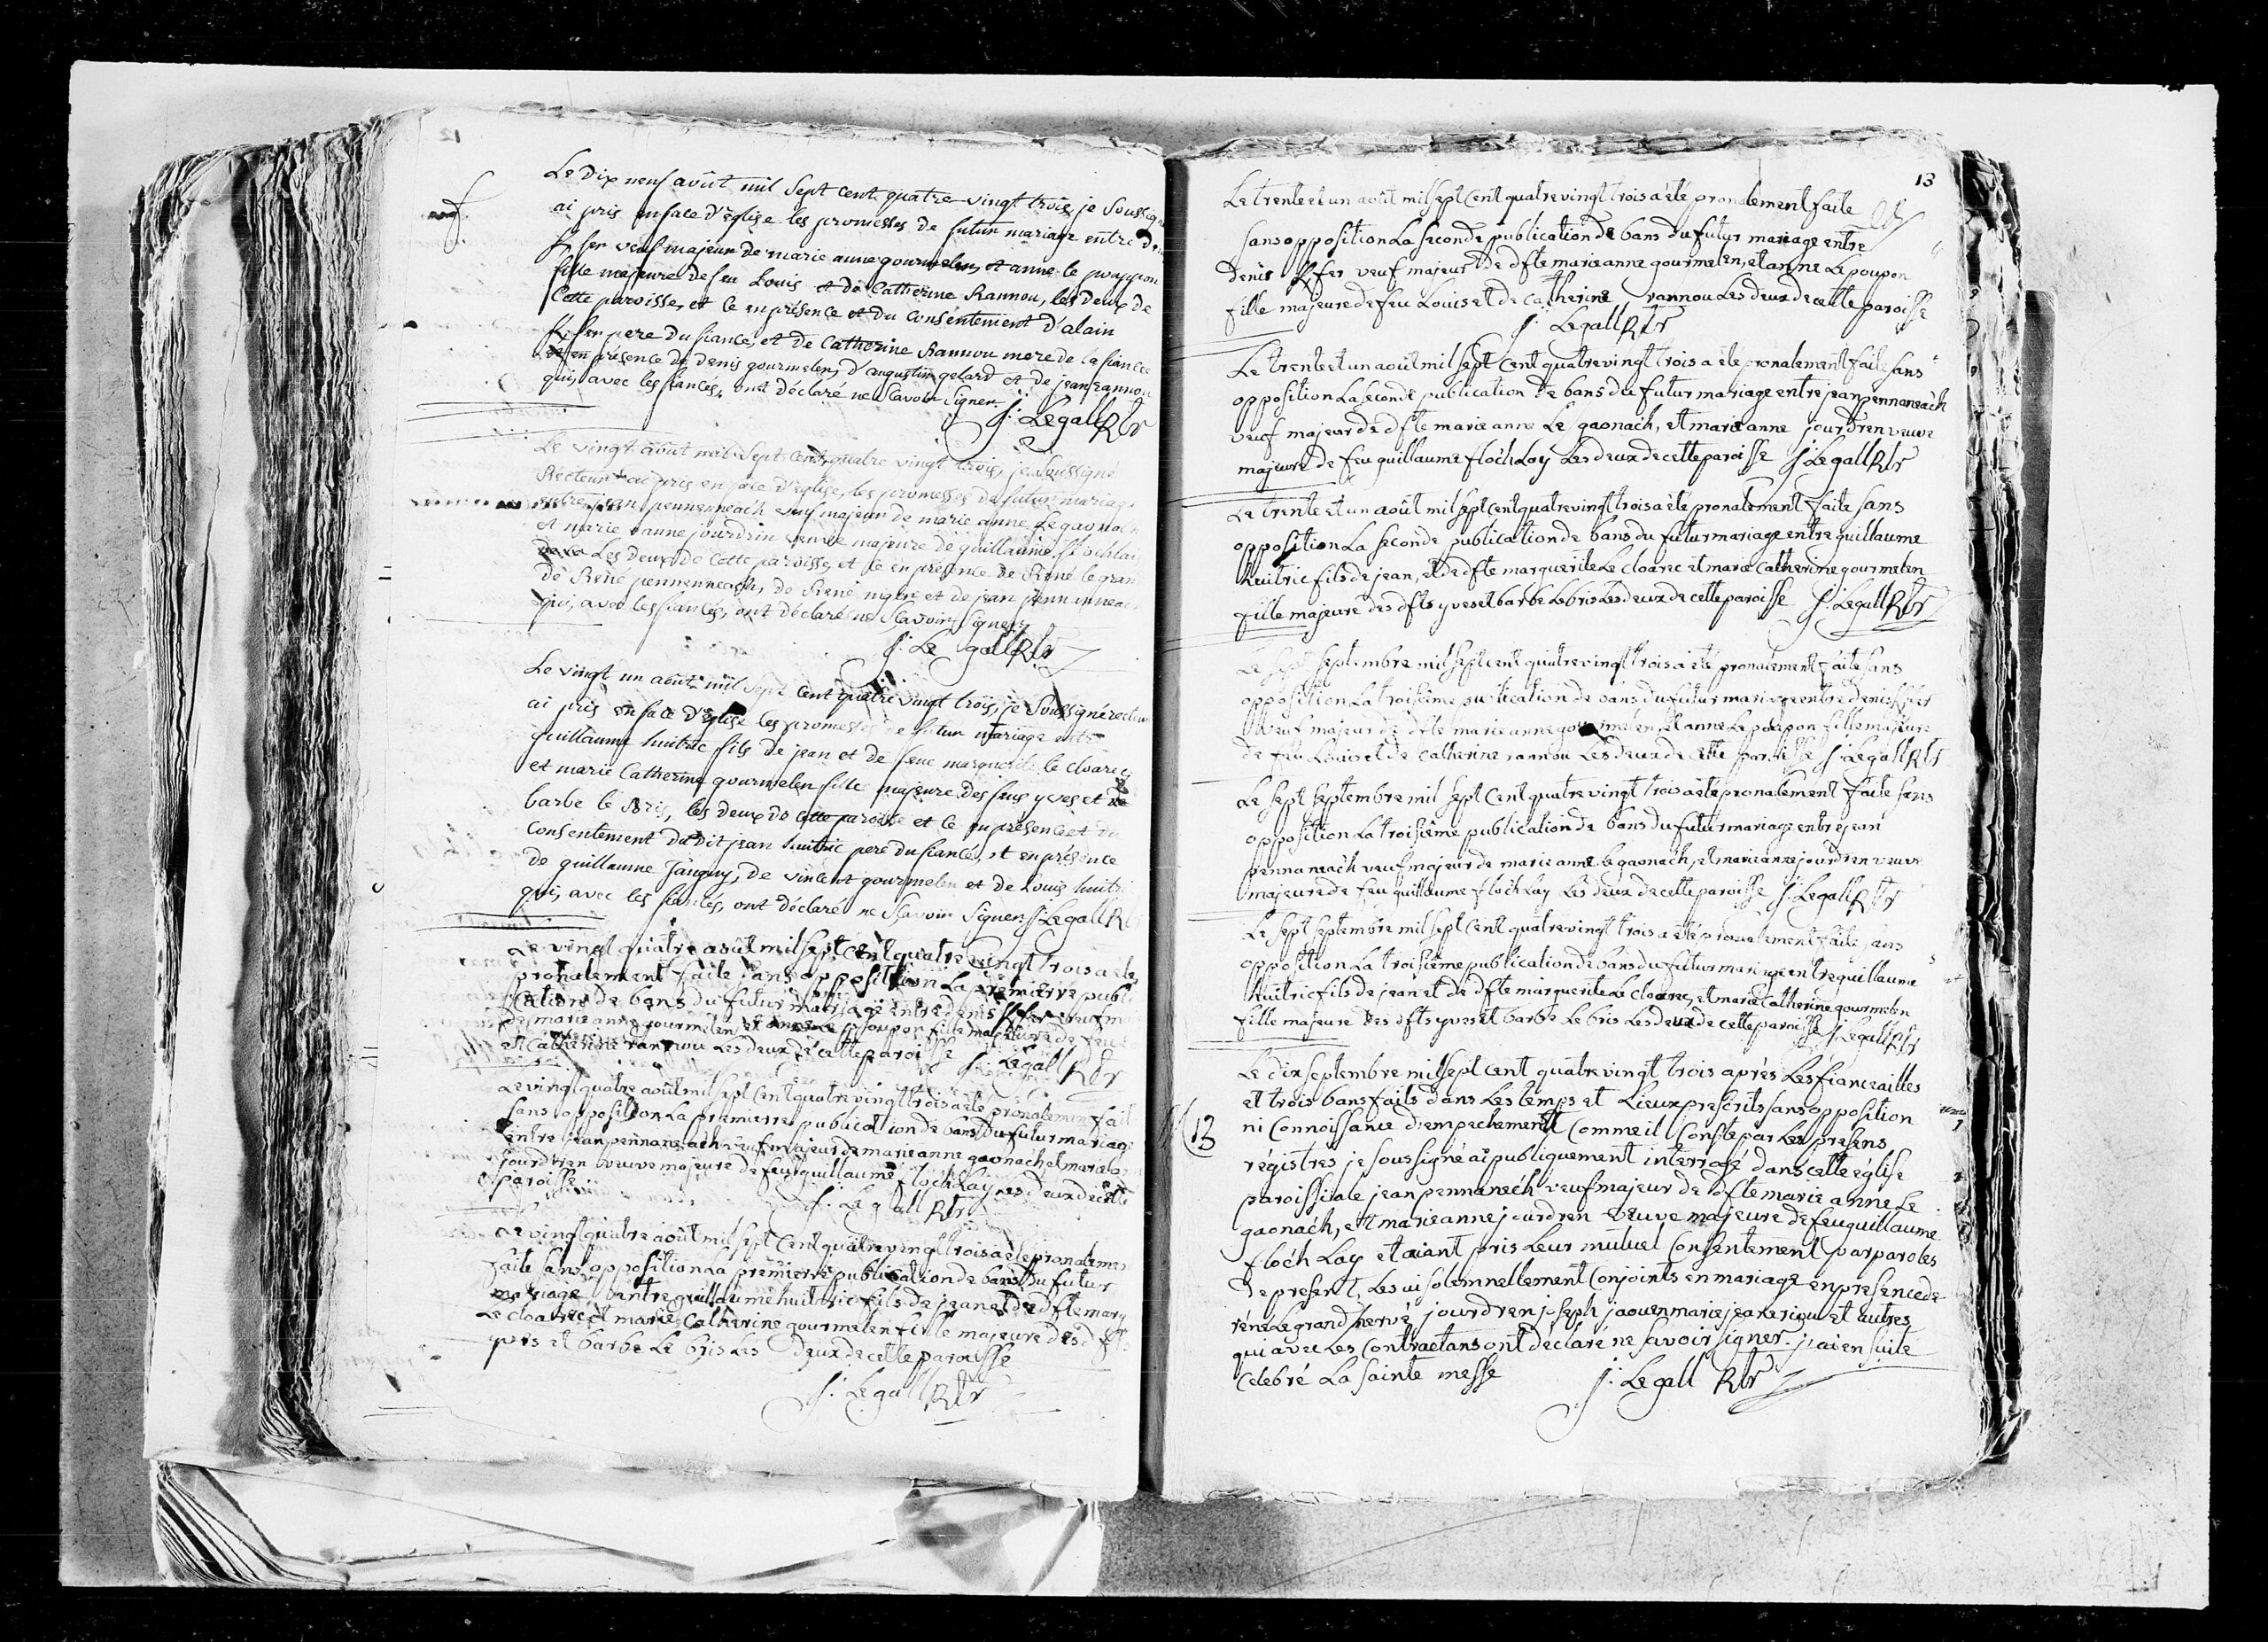 12
Le Dix neuf août mil Sept Cent quatre-vingt trois, je Soussigné
ai pris en face d'Eglise les promesses de futur mariage entre
veuf majeur de marie anne gourmelen, et anne le pouppon
fille majeure de feu Louis et de Catherine Rannou, les deux de
Cette paroisse, et ce en présence et du Consentement d'alain
pere du fiancé, et de Catherine Rannou mere de la fiancée
en présence de Denis gourmelen, d'augustin gelard et de jean rannou
qui, avec les fiancés, ont déclaré ne Scavoir Signer.
j: Le gall Rtr
Le vingt août mil Sept Cent quatre vingt trois, je Soussigné
Recteur ai pris en face d'Eglise, les promesses de futur mariage
entre jean pennenneach veuf majeur de marie anne Le gaonach
et marie anne jourdrin veuve majeure de guillaume flochlay
Les Deux de Cette paroisse, et ce en présence de René le grand
de René pennenneach, de René et de jean pennenneach
qui, avec les fiancés, ont déclaré ne Scavoir Signer
j: Le gall Rtr
Le vingt un août mil Sept Cent quatre vingt trois, je Soussigné recteur
ai pris en face d'Eglise les promesses de futur mariage entre
guillaume huitric fils de jean et de feue marguerite le cloarec
et marie Catherine gourmelen fille majeure des feus yves et de
barbe le Bris, les deux de Cette paroisse et ce en présence et du
Consentement dudit jean huitric pere du fiancé, et en présence
de guillaume janguy, de vincent gourmelen et de Louis huitric
qui, avec les fiancés, ont déclaré ne Scavoir Signer j: Le gall R
Le vingt quatre août mil sept Cent quatre vingt trois a été
pronalement faite Sans opposition La premierre publi
cation de bans du futur mariage entre denis Kfer veuf m
de marie anne gourmelen et anne Le poupon fille majeure de feu
et Catherine rannou Les deux de cette paroisse j: Legall Rtr
Le vingt quatre août mil sept Cent quatre vingt trois a été pronalement fait
Sans opposition La premierre publication de bans du futur mariage
entre jean pennaneach veuf majeur de marie anne gaonach et marie
jourdren veuve majeure de feu guillaume floch Lay Les deux de cette
paroisse
j: Le gall Rtr
Le vingt quatre août mil sept Cent quatre vingt trois a été pronalement
faite sans opposition La premierre publication de bans du futur
mariage entre guillaume huitric fils de jean et de dfte marg
Le cloarec et marie Catherine gourmelen fille majeure des dfts
yves et barbe Le bris Les deux de cette paroisse
j: Le gall Rtr
13
Le trente et un août mil sept Cent quatre vingt trois a été pronalement faite
sans opposition La Seconde publication de bans du futur mariage entre
denis Kfer veuf majeur de dfte marie anne gourmelen, et anne Le poupon
fille majeure de feu Louis et de Catherine rannou Les deux de cette paroisse
j: Legall Rtr
Le trente et un août mil sept Cent quatre vingt trois a été pronalement faite sans
opposition La Seconde publication de bans du futur mariage entre jean pennaneach
veuf majeur de dfte marie anne Le gaonach, et marie anne jourdren veuve
majeure de feu guillaume floch Lay Les deux de cette paroisse j: Legall Rtr
Le trente et un août mil sept Cent quatre vingt trois a été pronalement faite sans
opposition La Seconde publication de bans du futur mariage entre guillaume
huitric fils de jean, et de dfte marguerite Le Cloarec et marie Catherine gourmelen
fille majeure des dfts yves et barbe Le bris Les deux de cette paroisse j: Legall Rtr
Le Sept Septembre mil Sept Cent quatre vingt trois a été pronalement faite sans
opposition La troisième publication de bans du futur mariage entre denis Kfer
veuf majeur de dfte marie anne gourmelen, et anne Le poupon fille majeure
de feu Louis et de Catherine rannou Les deux de cette paroisse j: Legall Rtr
Le Sept Septembre mil Sept Cent quatre vingt trois a été pronalement faite sans
opposition La troisième publication de bans du futur mariage entre jean
pennaneach veuf majeur de marie anne Le gaonach, et marie anne jourdren veuve
majeure de feu guillaume floch Lay Les deux de cette paroisse j: Legall Rtr
Le Sept Septembre mil Sept Cent quatre vingt trois a été pronalement faite sans
opposition La troisième publication de bans du futur mariage entre guillaume
huitric fils de jean et de dfte marguerite Le Cloarec, et marie Catherine gourmelen
fille majeure des dfts yves et barbe Le bris Les deux de cette paroisse j: Legall Rtr
Le dix septembre mil Sept Cent quatre vingt trois après Les fiancailles
et trois bans faits dans Les temps et Lieux prescrits sans opposition
13
ni Connoissance d'empechement Comme il Conste par Les presens
régistres je soussigné ai publiquement interrogé dans cette église
paroissiale jean pennaneéch veuf majeur de dfte marie anne Le
gaonach, et marie anne jourdren veuve majeure de feu guillaume
floch Lay et aiant pris Leur mutuel Consentement par paroles
de present, Les ai solemnellement Conjoints en mariage en presence de
réné Le grand hervé jourdren joseph jaouen marie jeanne riou et autres
qui avec Les Contractans ont déclaré ne savoir signer. j'ai en suite
celebré La sainte messe j: Le gall Rtr